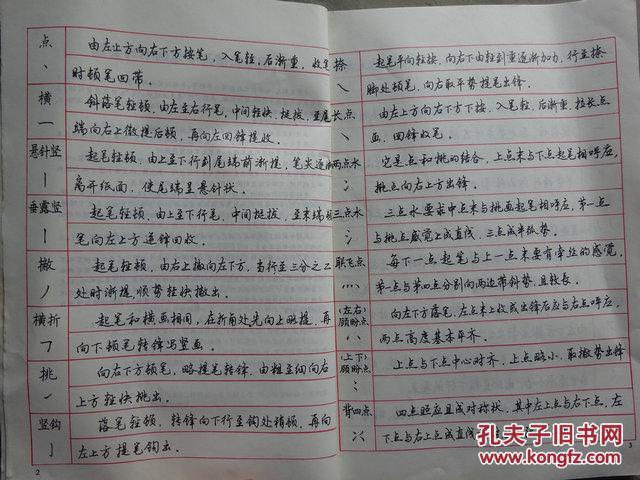 点
丶
由左上方向右下方按笔，入笔轻，后渐重，收笔
时顿笔回带．
横
一
斜落笔轻顿，由左至右行笔，中间轻快，挺拔，至尾
端向右上微提后顿，再向左回锋提收．
悬针竖
丨
起笔轻顿，由上至下行到尾端前渐提，笔尖逐渐
离开纸面，使尾端呈悬针状．
垂露竖
丨
起笔轻顿，由上至下行笔，中间挺拔，至末端
笔向左上方逆锋回收．
撇
丿
起笔轻顿，由右上撇向左下方，当行至三分之二
处时渐提，顺势轻快撇出．
横折
㇕
起笔和横画相同，在折角处先向上略提，再
向下顿笔转锋写竖画．
挑
㇀
向右下方顿笔，略提笔转锋，由粗至细向右
上方轻快挑出．
竖钩
亅
落笔轻顿，转锋向下行至钩处稍顿，再向
左上方提笔钩出．
2
捺
㇏
起笔平向轻按，向右下由轻到重逐渐加力，行至捺
脚处顿笔，向右取平势提笔出锋．
长点
由左上方向右下方下按，入笔轻，后渐重，拉长点
画，回锋收笔．
两点水
冫
它是点和挑的结合，上点末与下点起笔相呼应，
挑点向右上方出锋．
三点水
氵
三点水要求中点末与挑画起笔相呼应，第一点
与挑点感觉上成直线，三点成半弧势．
联飞点
灬
每下一点起笔与上一点末要有牵丝的感觉，
第一点与第四点分别向两边带斜势，且较长．
（左右）
顾盼点
向左下方落笔，左点末上收或出锋后应与右点呼应，
两点高度基本平齐．
（上下）
顾盼点
上点与下点中心对齐，上点略小，取撇势出锋
背四点
四点照应且成对称状，其中左上点与右下点，左
下点与右上点成直线
3
孔夫子旧书网
www.kongfz.com